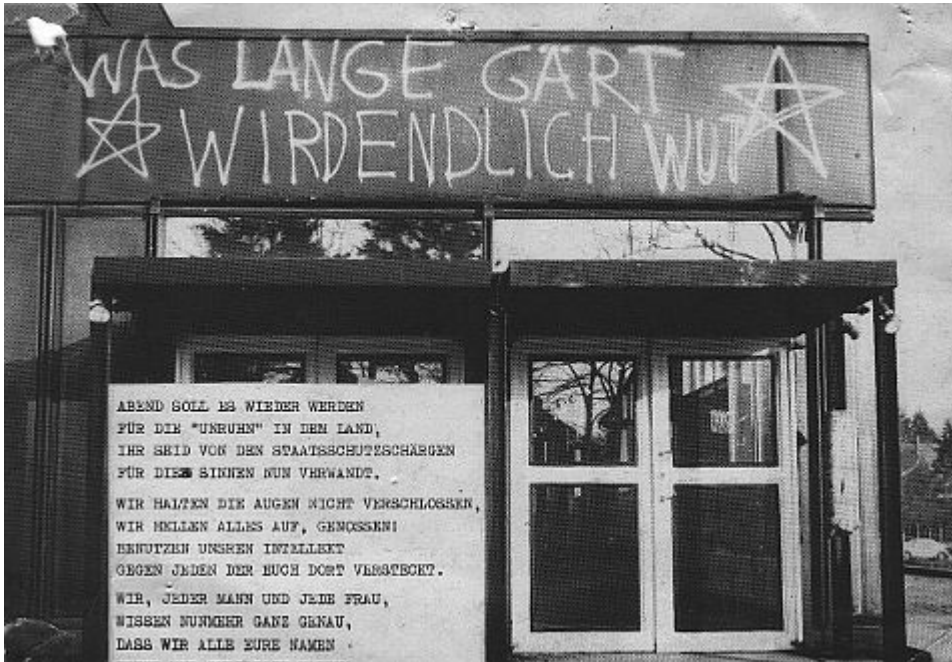 WAS LANGE GÄRT
WIRD ENDLICH WUT
ABEND SOLL ES WIEDER WERDEN
FÜR DIE "UNRUHN" IN DEM LAND,
IHR SEID VON DEN STAATSSCHUTZSCHÄRGEN
FÜR DIES SINNEN NUN VERWANDT.
WIR HALTEN DIE AUGEN NICHT VERSCHLOSSEN,
WIR HELLEN ALLES AUF, GENOSSEN!
BENUTZEN UNSREN INTELLEKT
GEGEN JEDEN DER EUCH DORT VERSTECKT.
WIR, JEDER MANN UND JEDE FRAU,
WISSEN NUNMEHR GANZ GENAU,
DASS WIR ALLE EURE NAMEN